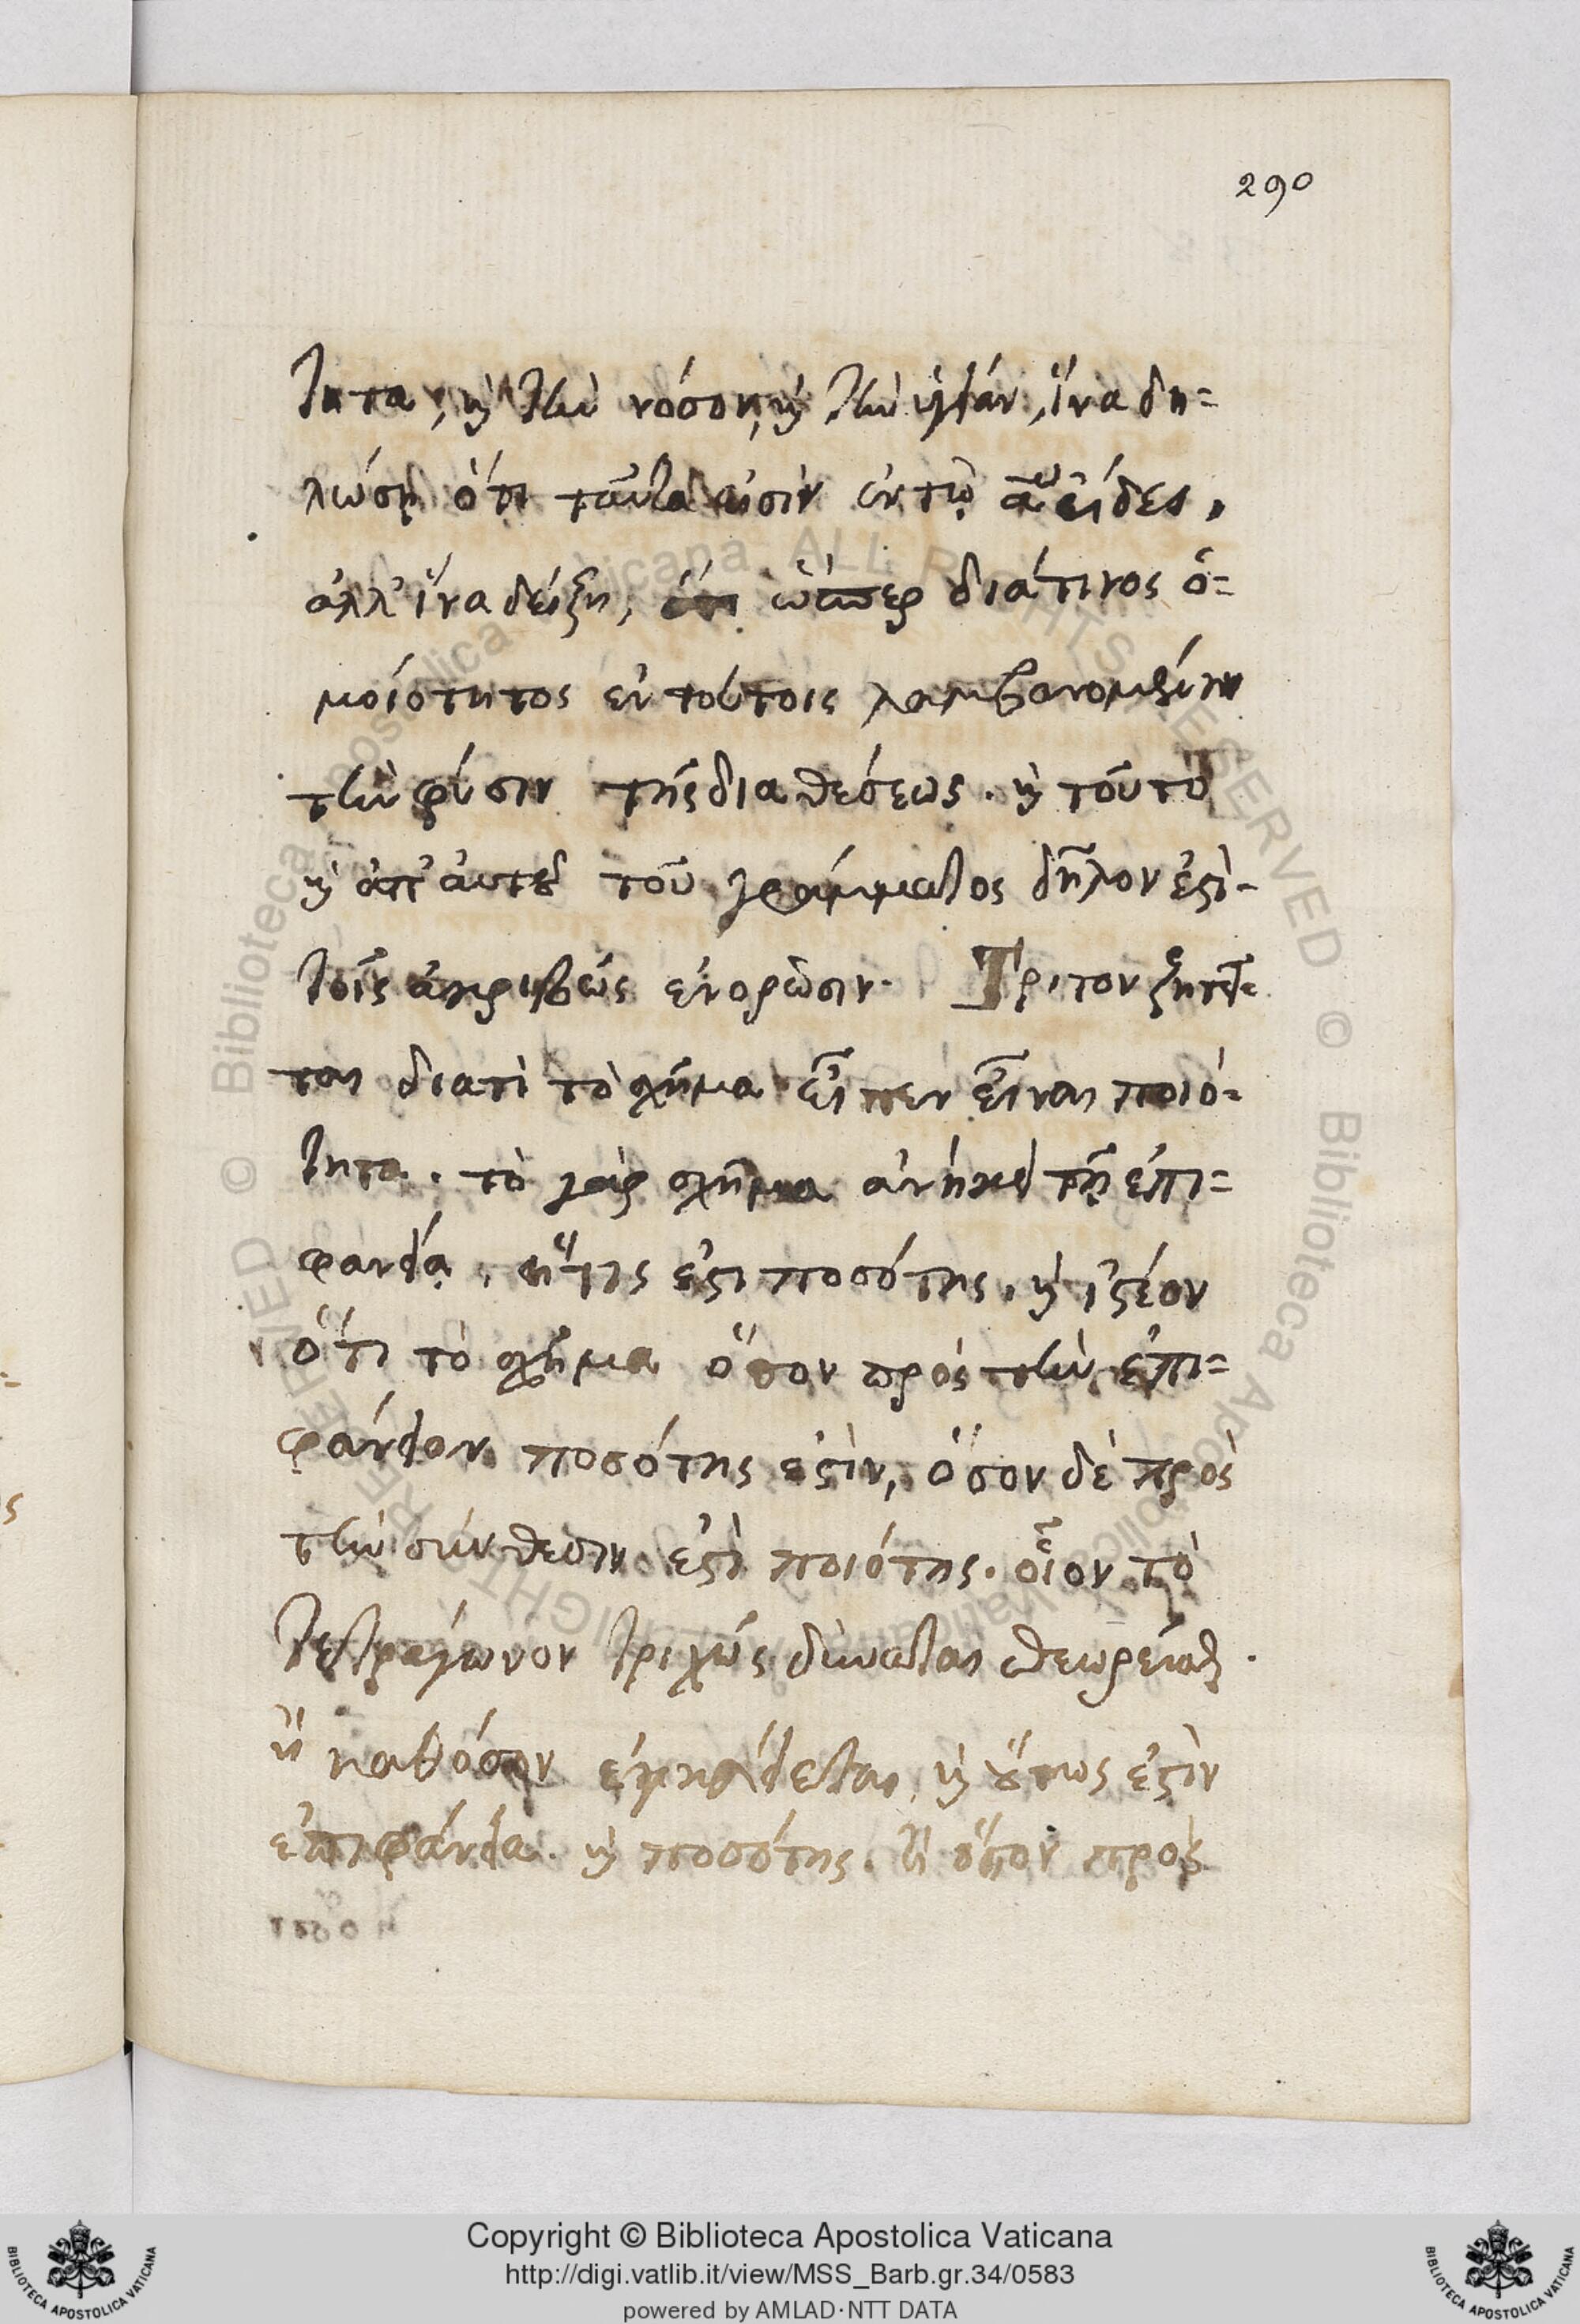 290
τητα, καὶ τὴν νόσον, καὶ τὴν ὑγείαν, ἵνα δη=
λώσῃ ὅτι ταῦτα εἰσὶν ἐν τῷ αῳ εἴδει,
ἀλλ' ἵνα δείξῃ, ὥσπερ διά τινος ὁ=
μοιότητος ἐν τούτοις λαμβανομένην
τὴν φύσιν τῆς διαθέσεως. καὶ τοῦτο
καὶ ἀπ' αὐτοῦ τοῦ γράμματος δῆλον ἐστὶ
τοῖς ἀκριβῶς ἐνορῶσιν. Τρίτον ζητεῖ=
ται διατὶ τὸ σχῆμα εἶπεν εἶναι ποιό=
τητα. τὸ γὰρ σχῆμα ἀνήκει τῇ ἐπι=
φανείᾳ, ἥτις ἐστι ποσότης. καὶ ἰστέον
ὅτι τὸ σχῆμα ὅσον πρὸς τὴν ἐπι=
φάνειαν ποσότης ἐστὶν, ὅσον δὲ πρὸς
τὴν σύνθεσιν ἐστὶ ποιότης. οἷον τὸ
τετράγωνον τριχῶς δύναται θεωρεῖσθαι.
ἢ καθόσον καὶ οὕτως ἐστὶν
ἐπιφάνεια καὶ ποσότης. ἢ ὅσον πρὸς
Copyright © Biblioteca Apostolica Vaticana
http://digi.vatlib.it/view/MSS_Barb.gr.34/0583
powered by AMLAD·NTT DATA